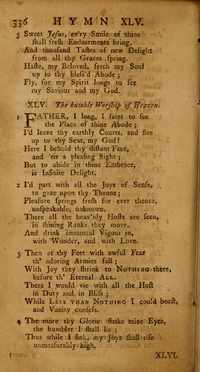 336 HYMN XLV.
5 Sweet Jesus, ev'ry Smile of thine
shall fresh Endearments bring,
And thousand Tastes of new Delight
from all thy Graces spring.
Haste, my Beloved, fetch my Soul
up to thy bless'd Abode;
Fly, for my Spirit longs to see
my Saviour and my God.
XLV. The humble Worship of Heaven.
1 FATHER, I long, I faint to see
the Place of thine Abode;
I'd leave thy earthly Courts, and flee
up to thy Seat, my God!
Here I behold thy distant Face,
and 'tis a pleasing Sight;
But to abide in thine Embrace,
is Infinite Delight.
2 I'd part with all the Joys of Sense,
to gaze upon thy Throne;
Pleasure springs fresh for ever thence,
unspeakable, unknown.
There all the heav'nly Hosts are seen,
in shining Ranks they move,
And drink immortal Vigour in,
with Wonder, and with Love.
3 Then at thy Feet with awful Fear
th' adoring Armies fall;
With Joy they shrink to NOTHING there,
before th' Eternal ALL.
There I would vie with all the Host
in Duty and in Bliss;
While LESS THAN NOTHING I could boast,
and Vanity confess.
4 The more thy Glories strike mine Eyes,
the humbler I shall lie;
Thus while I sink, my Joys shall rise
unmeasurably high.
XLVI.